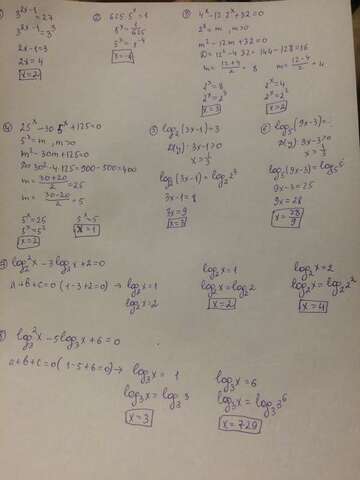 1) 3^{2x-1}=27
3^{2x-1}=3^3
2x-1=3
2x=4
x=2
2) 625.5^x=1
5^x=1/625
5^x=5^{-4}
x=-4
3) 4^x-12.2^x+32=0
2^x=m, m>0
m^2-12m+32=0
D=12^2-4.32=144-128=16
m=(12+4)/2=8 m=(12-4)/2=4
2^x=8 2^x=4
2^x=2^3 2^x=2^2
x=3 x=2
4) 25^x-30.5^x+125=0
5^x=m, m>0
m^2-30m+125=0
D=30^2-4.125=900-500=400
m=(30+20)/2=25
m=(30-20)/2=5
5^x=25 5^x=5
5^x=5^2 x=1
x=2
5) log_2(3x-1)=3
D(y) 3x-1>0
x>1/3
log_2(3x-1)=log_2 2^3
3x-1=8
3x=9
x=3
6) log_5(9x-3)=
D(y) 9x-3>0
x>1/3
log_5(9x-3)=log_5
9x-3=25
9x=28
x=28/9
log_2^2x-3log_2x+2=0
a+b+c=0 (1-3+2=0) → log_2x=1
log_2x=2
log_2x=1
log_2x=log_2 2
x=2
log_2x=2
log_2x=log_2 2^2
x=4
log_3^2x-5log_3x+6=0
a+b+c=0 (1-5+6=0) → log_3x=1
log_3x=log_3 3
x=3
log_3x=6
log_3x=log_3 3^6
x=729